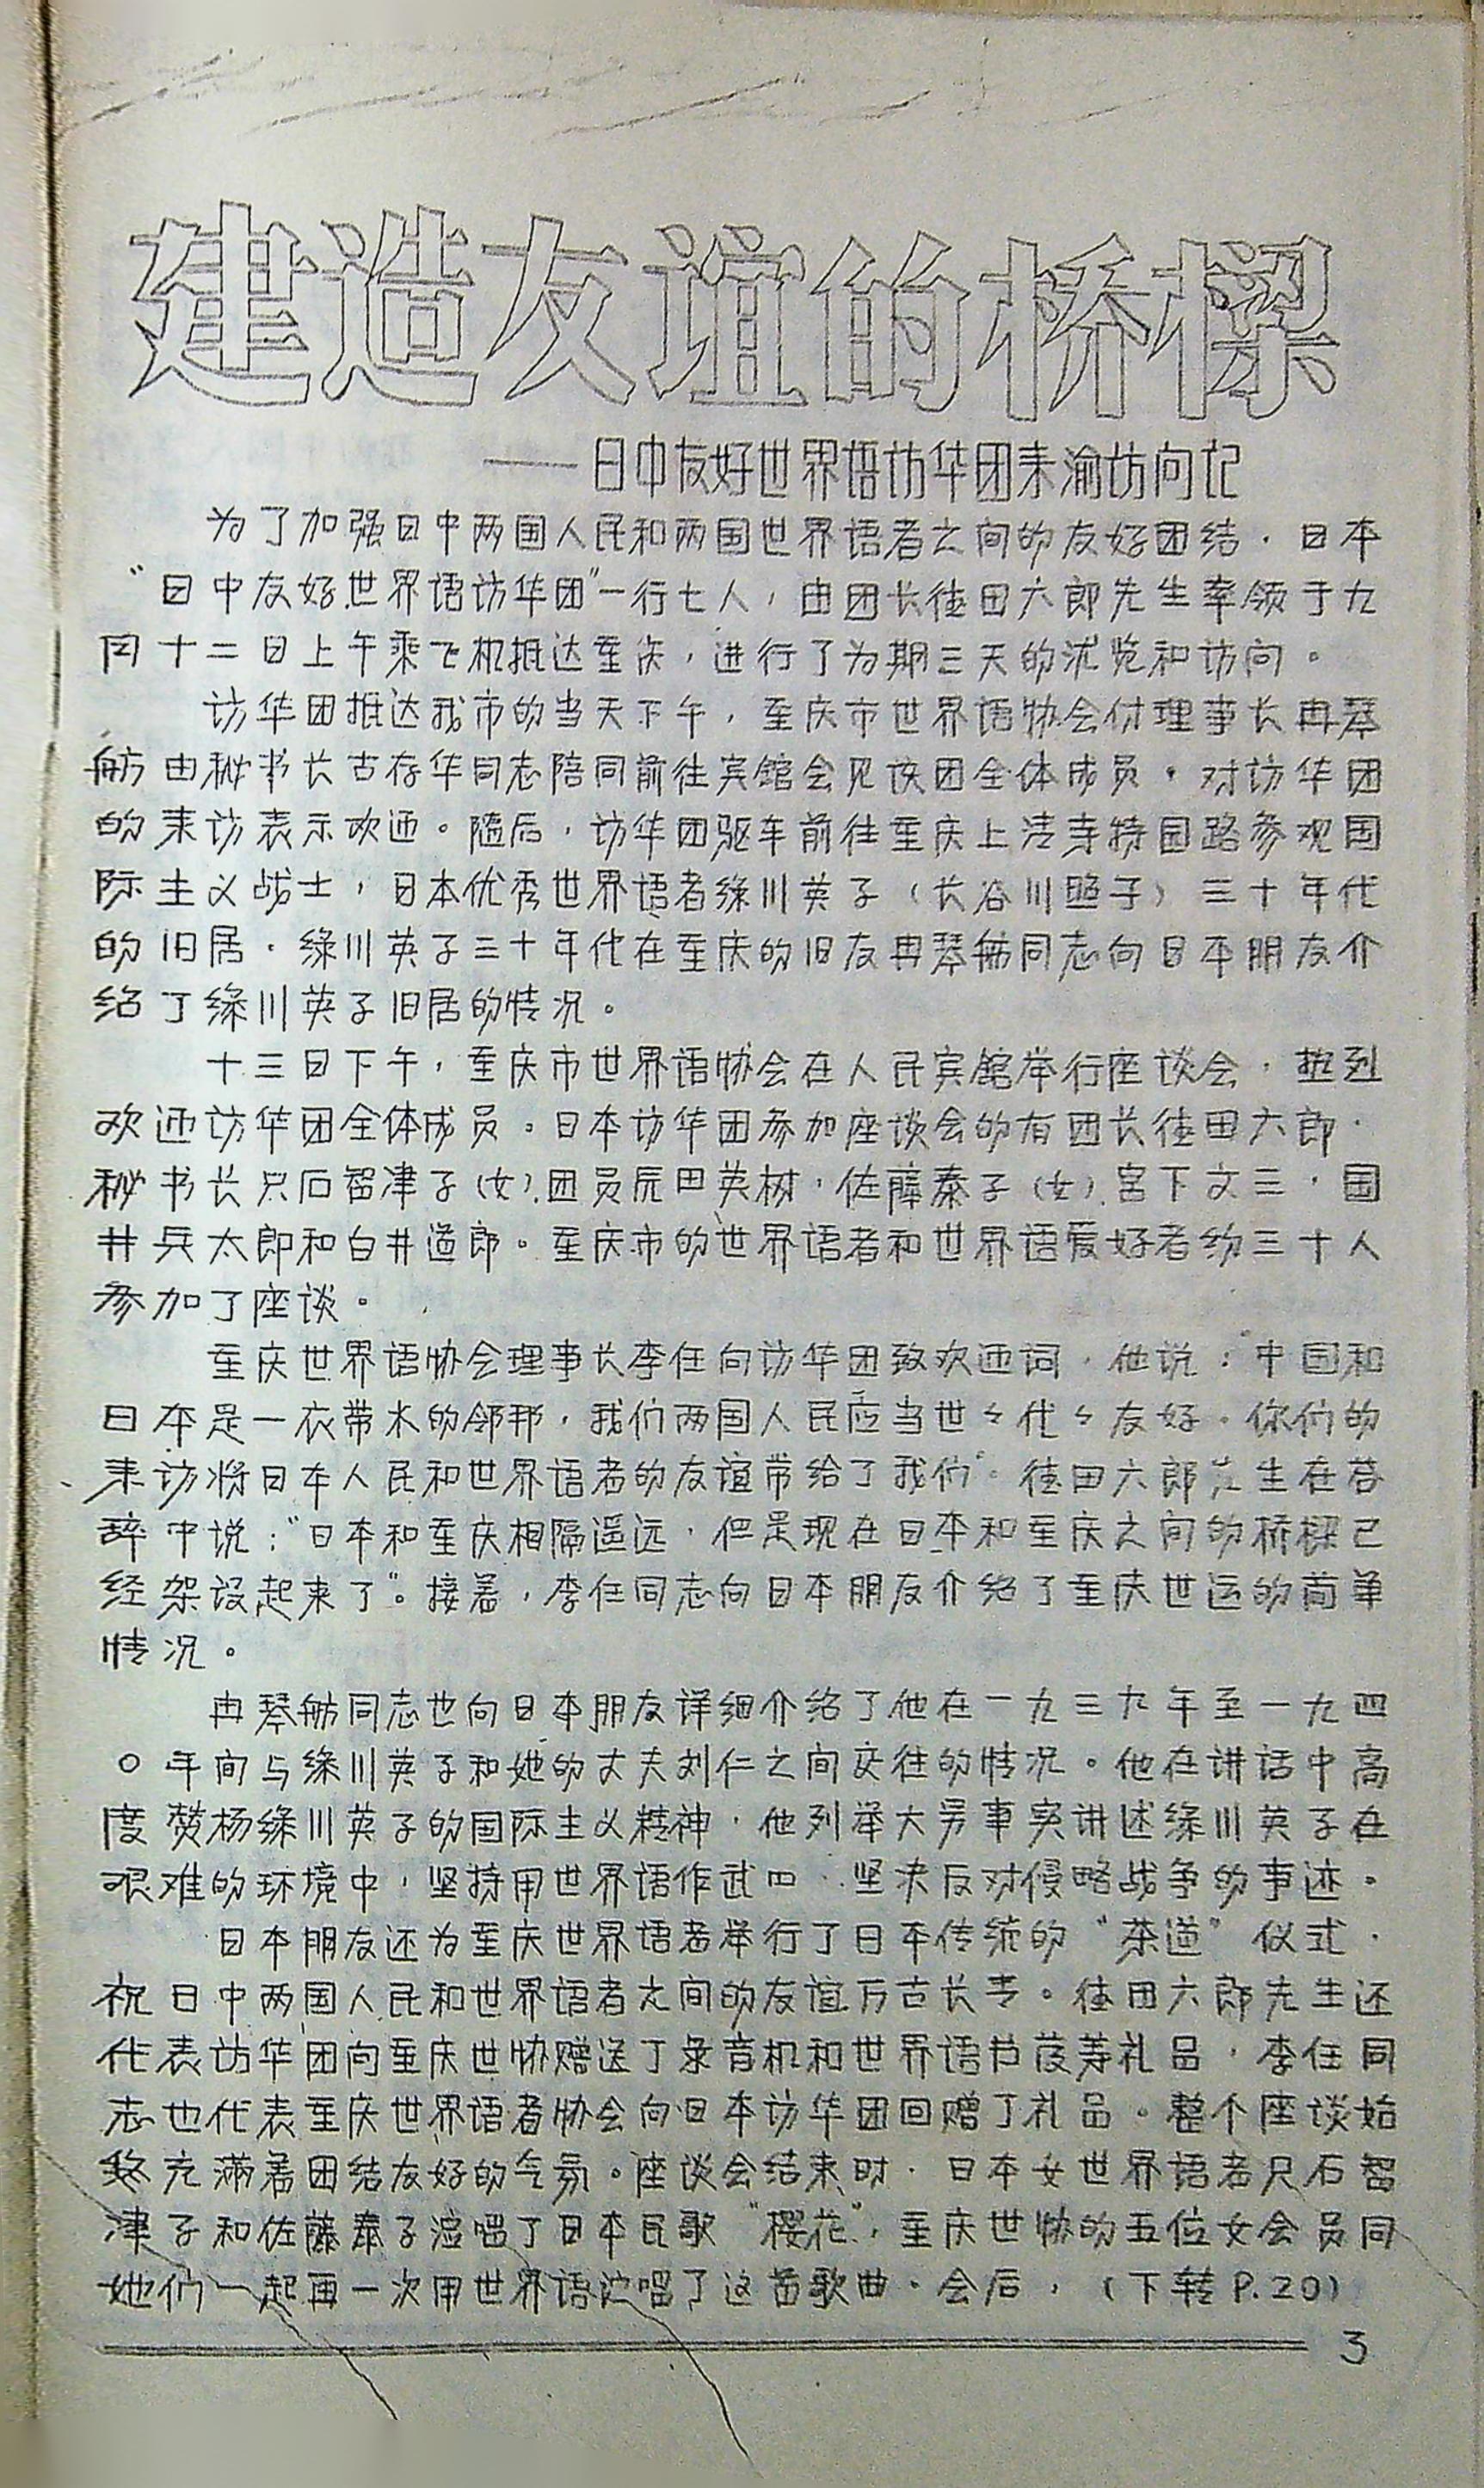 建造友谊的桥樑
——日中友好世界语访华团来渝访问记
为了加强日中两国人民和两国世界语者之间的友好团结，日本
“日中友好世界语访华团”一行七人，由团长德田六郎先生率领于九
月十二日上午乘飞机抵达重庆，进行了为期三天的游览和访问。
访华团抵达我市的当天下午，重庆市世界语协会付理事长冉琴
舫由秘书长古存华同志陪同前往宾馆会见该团全体成员，对访华团
的来访表示欢迎。随后，访华团驱车前往重庆上清寺特园路参观国
际主义战士，日本优秀世界语者绿川英子（长谷川照子）三十年代
的旧居。绿川英子三十年代在重庆的旧友冉琴舫同志向日本朋友介
绍了绿川英子旧居的情况。
十三日下午，重庆市世界语协会在人民宾馆举行座谈会，热烈
欢迎访华团全体成员。日本访华团参加座谈会的有团长德田六郎，
秘书长尺石智津子（女）、团员辰巴英树，佐藤泰子（女）、宫下文三，国
井兵太郎和白井道郎。重庆市的世界语者和世界语爱好者约三十人
参加了座谈。
重庆世界语协会理事长李任向访华团致欢迎词，他说：“中国和
日本是一衣带水的邻邦，我们两国人民应当世々代々友好。你们的
来访将日本人民和世界语者的友谊带给了我们”。德田六郎先生在答
辞中说：“日本和重庆相隔遥远，但是现在日本和重庆之间的桥樑已
经架设起来了”。接着，李任同志向日本朋友介绍了重庆世运的简单
情况。
冉琴舫同志也向日本朋友详细介绍了他在一九三九年至一九四
〇年间与绿川英子和她的丈夫刘仁之间交往的情况。他在讲话中高
度赞杨绿川英子的国际主义精神，他列举大量事实讲述绿川英子在
艰难的环境中，坚持用世界语作武四，坚决反对侵略战争的事迹。
日本朋友还为重庆世界语者举行了日本传统的“茶道”仪式，
祝日中两国人民和世界语者之间的友谊万古长青。德田六郎先生还
代表访华团向重庆世协赠送了录音机和世界语书籍等礼品，李任同
志也代表重庆世界语者协会向日本访华团回赠了礼品。整个座谈始
终充满着团结友好的气氛。座谈会结束时，日本女世界语者尺石智
津子和佐藤泰子演唱了日本民歌“樱花”，重庆世协的五位女会员同
她们一起再一次用世界语演唱了这首歌曲。会后，（下转P.20）
3